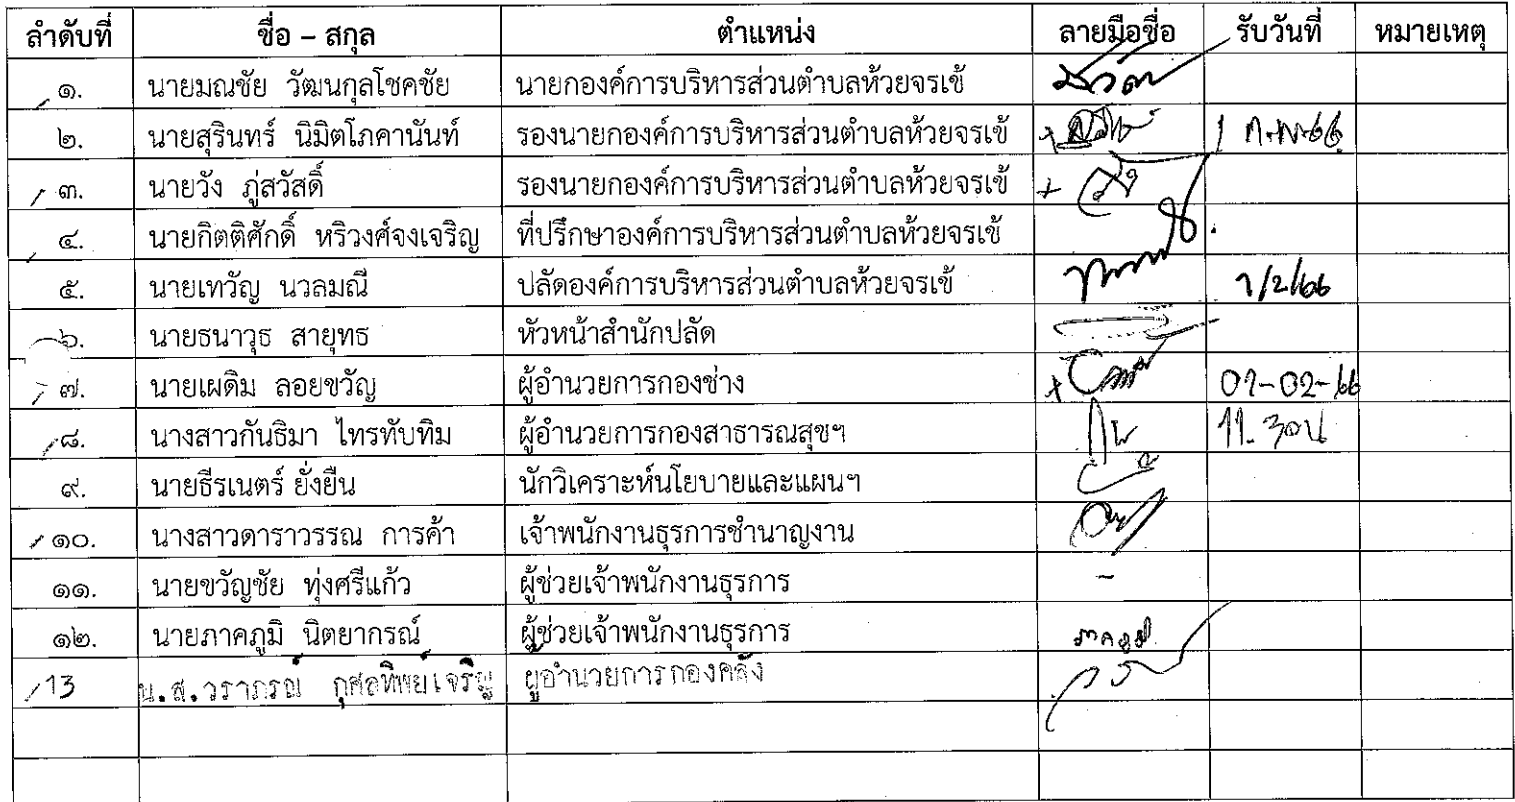 ลำดับที่ ชื่อ – สกุล ตำแหน่ง ลายมือชื่อ รับวันที่ หมายเหตุ
๑. นายมณชัย วัฒนกุลโชคชัย นายกองค์การบริหารส่วนตำบลห้วยจรเข้
๒. นายสุรินทร์ นิมิตโภคานันท์ รองนายกองค์การบริหารส่วนตำบลห้วยจรเข้ 1 ก.พ.66
๓. นายวัง ภู่สวัสดิ์ รองนายกองค์การบริหารส่วนตำบลห้วยจรเข้
๔. นายกิตติศักดิ์ หริวงศ์จงเจริญ ที่ปรึกษาองค์การบริหารส่วนตำบลห้วยจรเข้
๕. นายเทวัญ นวลมณี ปลัดองค์การบริหารส่วนตำบลห้วยจรเข้ 1/2/66
๖. นายธนาวุธ สายุทธ หัวหน้าสำนักปลัด
๗. นายเผดิม ลอยขวัญ ผู้อำนวยการกองช่าง 01-02-66
๘. นางสาวกันธิมา ไทรทับทิม ผู้อำนวยการกองสาธารณสุขฯ
๙. นายธีรเนตร์ ยั่งยืน นักวิเคราะห์นโยบายและแผนฯ
๑๐. นางสาวดาราวรรณ การค้า เจ้าพนักงานธุรการชำนาญงาน
๑๑. นายขวัญชัย ทุ่งศรีแก้ว ผู้ช่วยเจ้าพนักงานธุรการ -
๑๒. นายภาคภูมิ นิตยากรณ์ ผู้ช่วยเจ้าพนักงานธุรการ
13 น.ส.วราภรณ์ กุศลทิพย์เจริญ ผู้อำนวยการกองคลัง